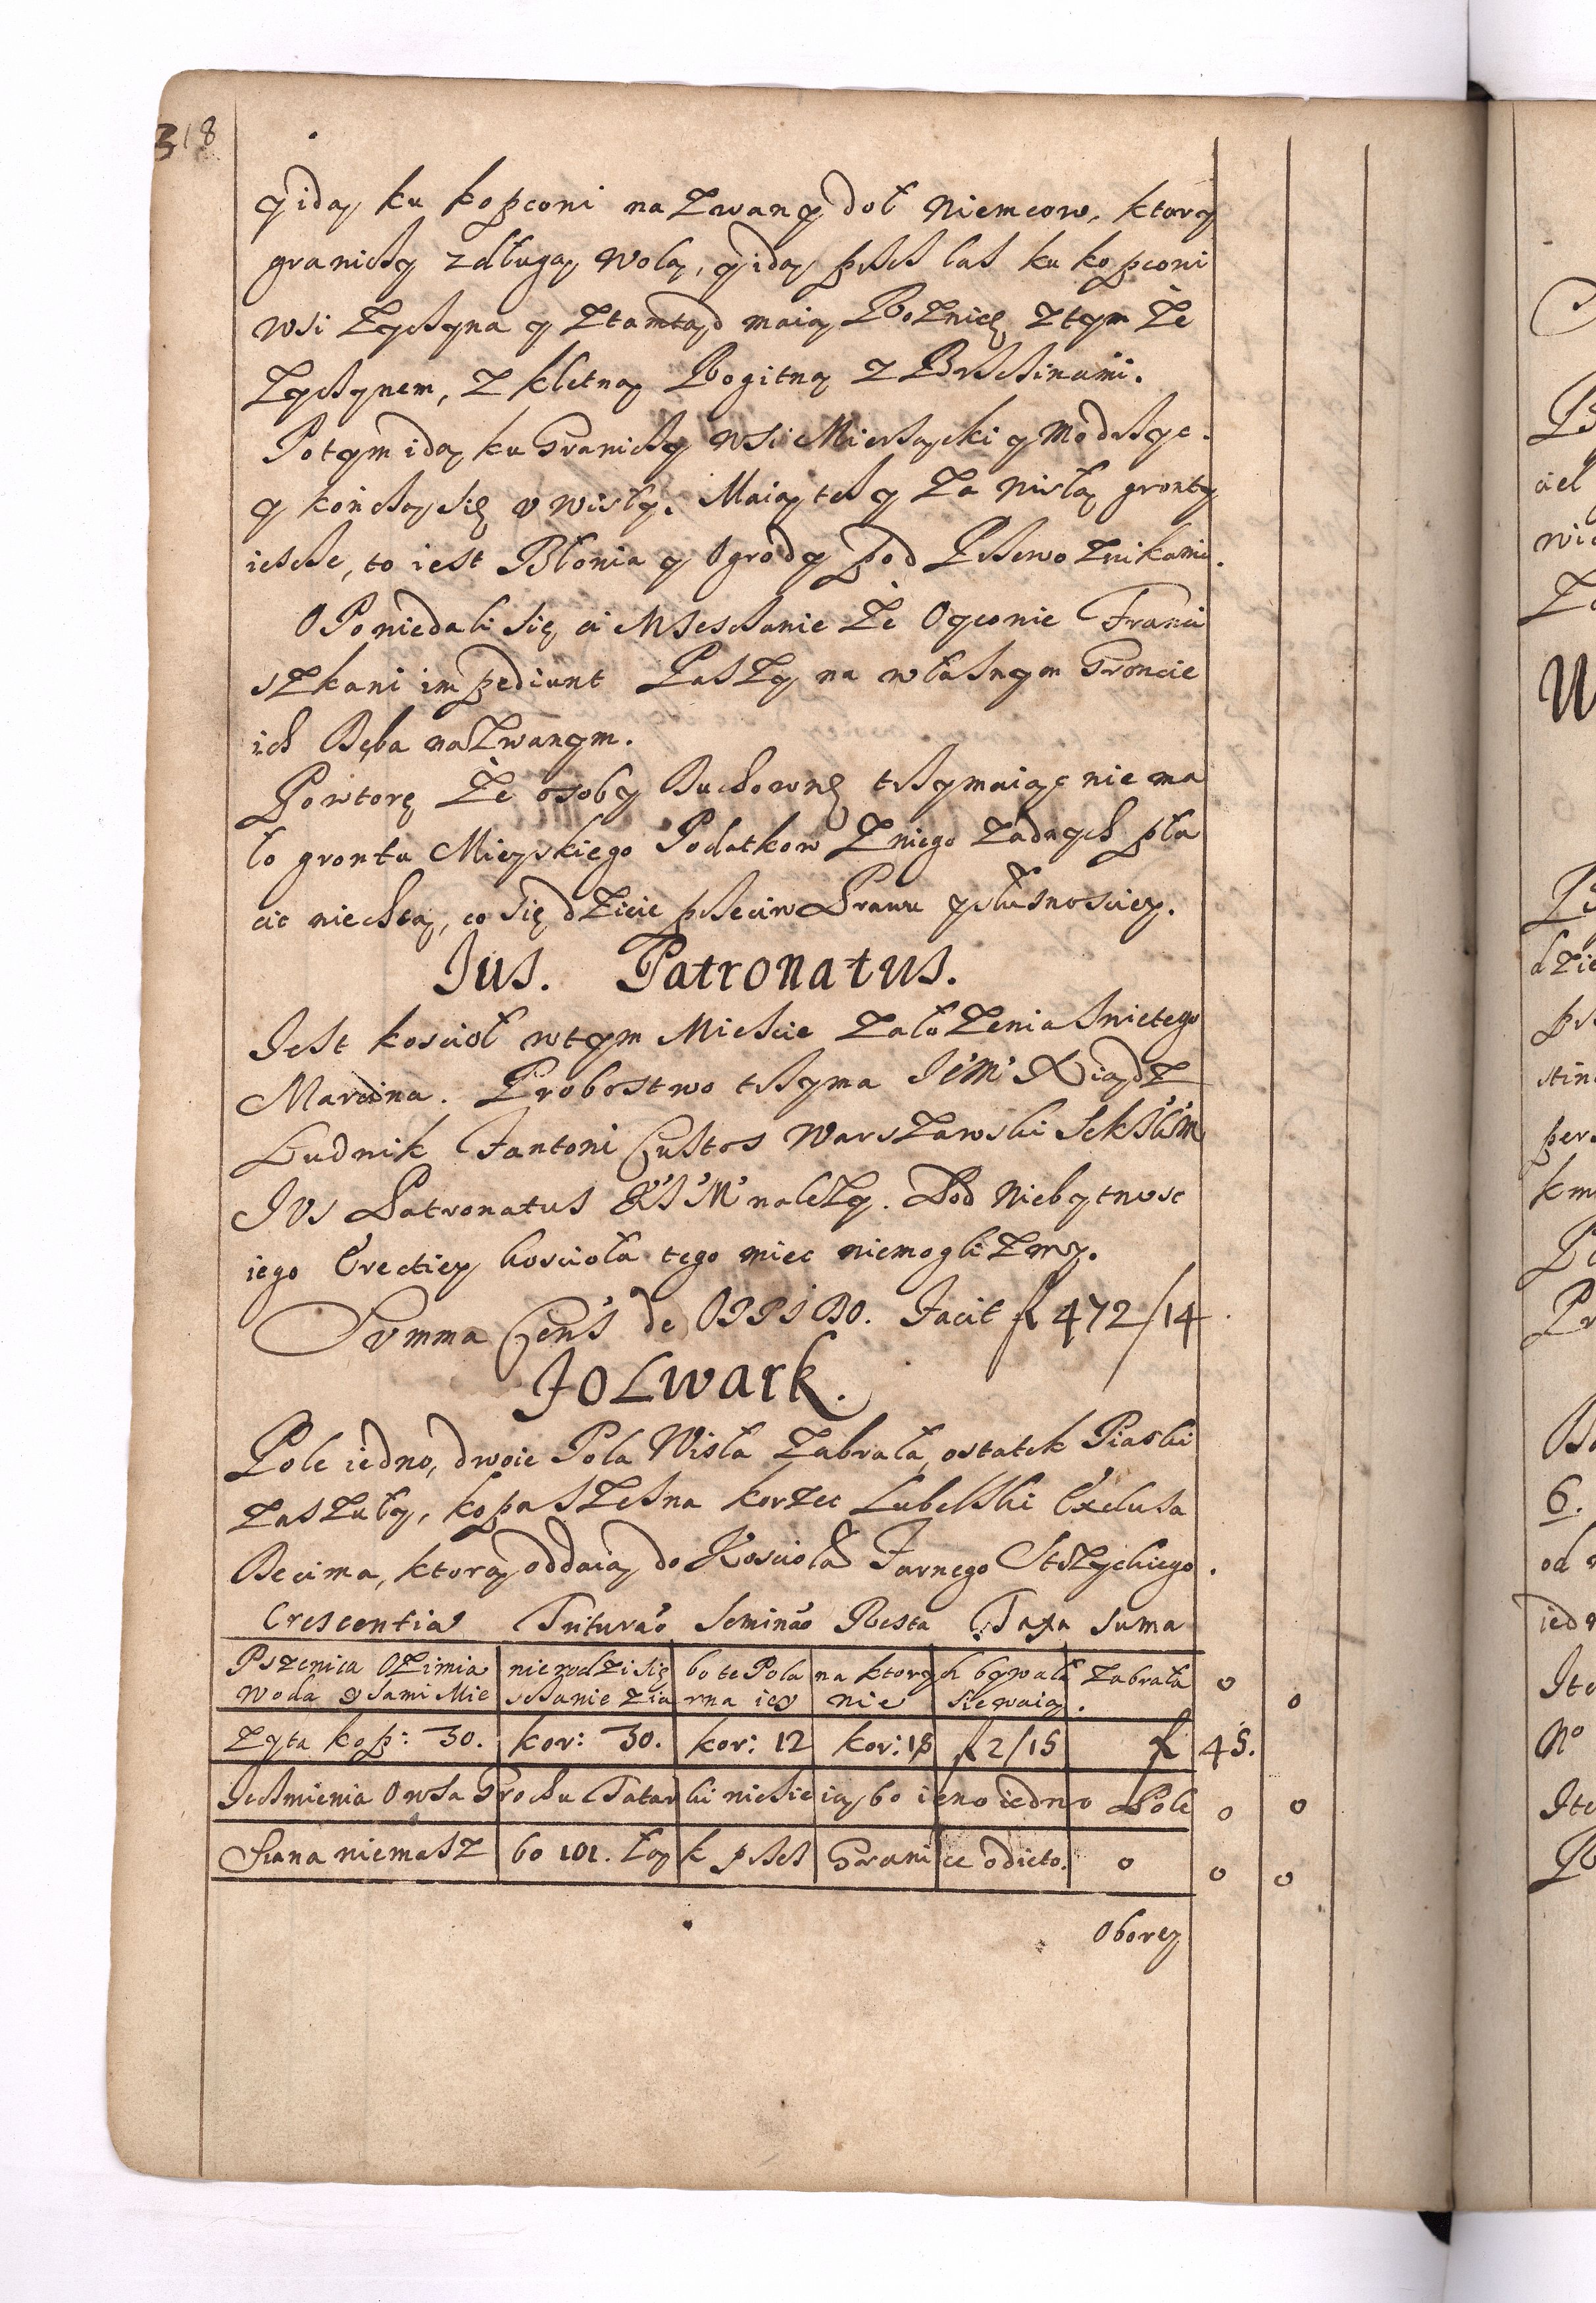 318
y idą ku kopcowi nazwany doł Niemcow, ktory
graniczy z długą Wolą, y idą przez las ku kopcowi
wsi Zyczyna y ztamtąd maią Roznicę z tym ze
Zyczynem, z kletną Rogitną z Brzezinami.
Potym idą ku Graniczy wsi Mierzącki y Modrzyc.
y kończą się v wisły. Maią tesz y za wisłą gronty
iescze, to iest Błonia y Ogrody pod Przewoznikami.
Opowiedali się ci Msesczanie że Oycowie Franci
szkani impediunt Paszą na własnym Groncie
ich Dęba nazwanym.
Powtorę że osoby Duchownę trzymaiąc nie ma
ło grontu Mieyskiego Podatkow z niego zadnych pła
cic niechcą, co się dzieie przeciw Prawu y słusnosciey.
Jus. Patronatus.
Jest kosciol w tym Miescie załozenia swietego
Marcina. Probostwo trzyma Je'm' Xiądz
Ludwik Fantoni Custos Warszawski Sek J K M
Jus Patronatus K J M nalezy. Pod Niebytnosc
iego Erectiey kosciola tego miec niemogli zmy.
Summa Cens de OPPIDO. Facit f 472/14
FOLwark.
Pole iedno, dwoie Pola Wisła zabrała, ostatek Piaski
zaszuły, kopa szesna korzec Lubelski Exclusa
Decima, ktorą oddaią do Kosciola Farnego Stszyckiego.
Crescentia Triturao Seminao Resta Taxa Suma
Pszenica Ozimia nie rodzi się bo te Pola na ktorych bywała zabrała 0
Woda y sami Mie sczanie ziarna iey nie siewaią. 0
Zyta kop: 30. kor: 30. kor: 12 kor: 18 f 2/15 f 45.
Jeczmienia Owsa Grochu Tatarki niesieią bo ieno iedno Pole 0 0
Siana niemasz bo 101. Łąk przez Granice odieto. 0 0 0
Oborey